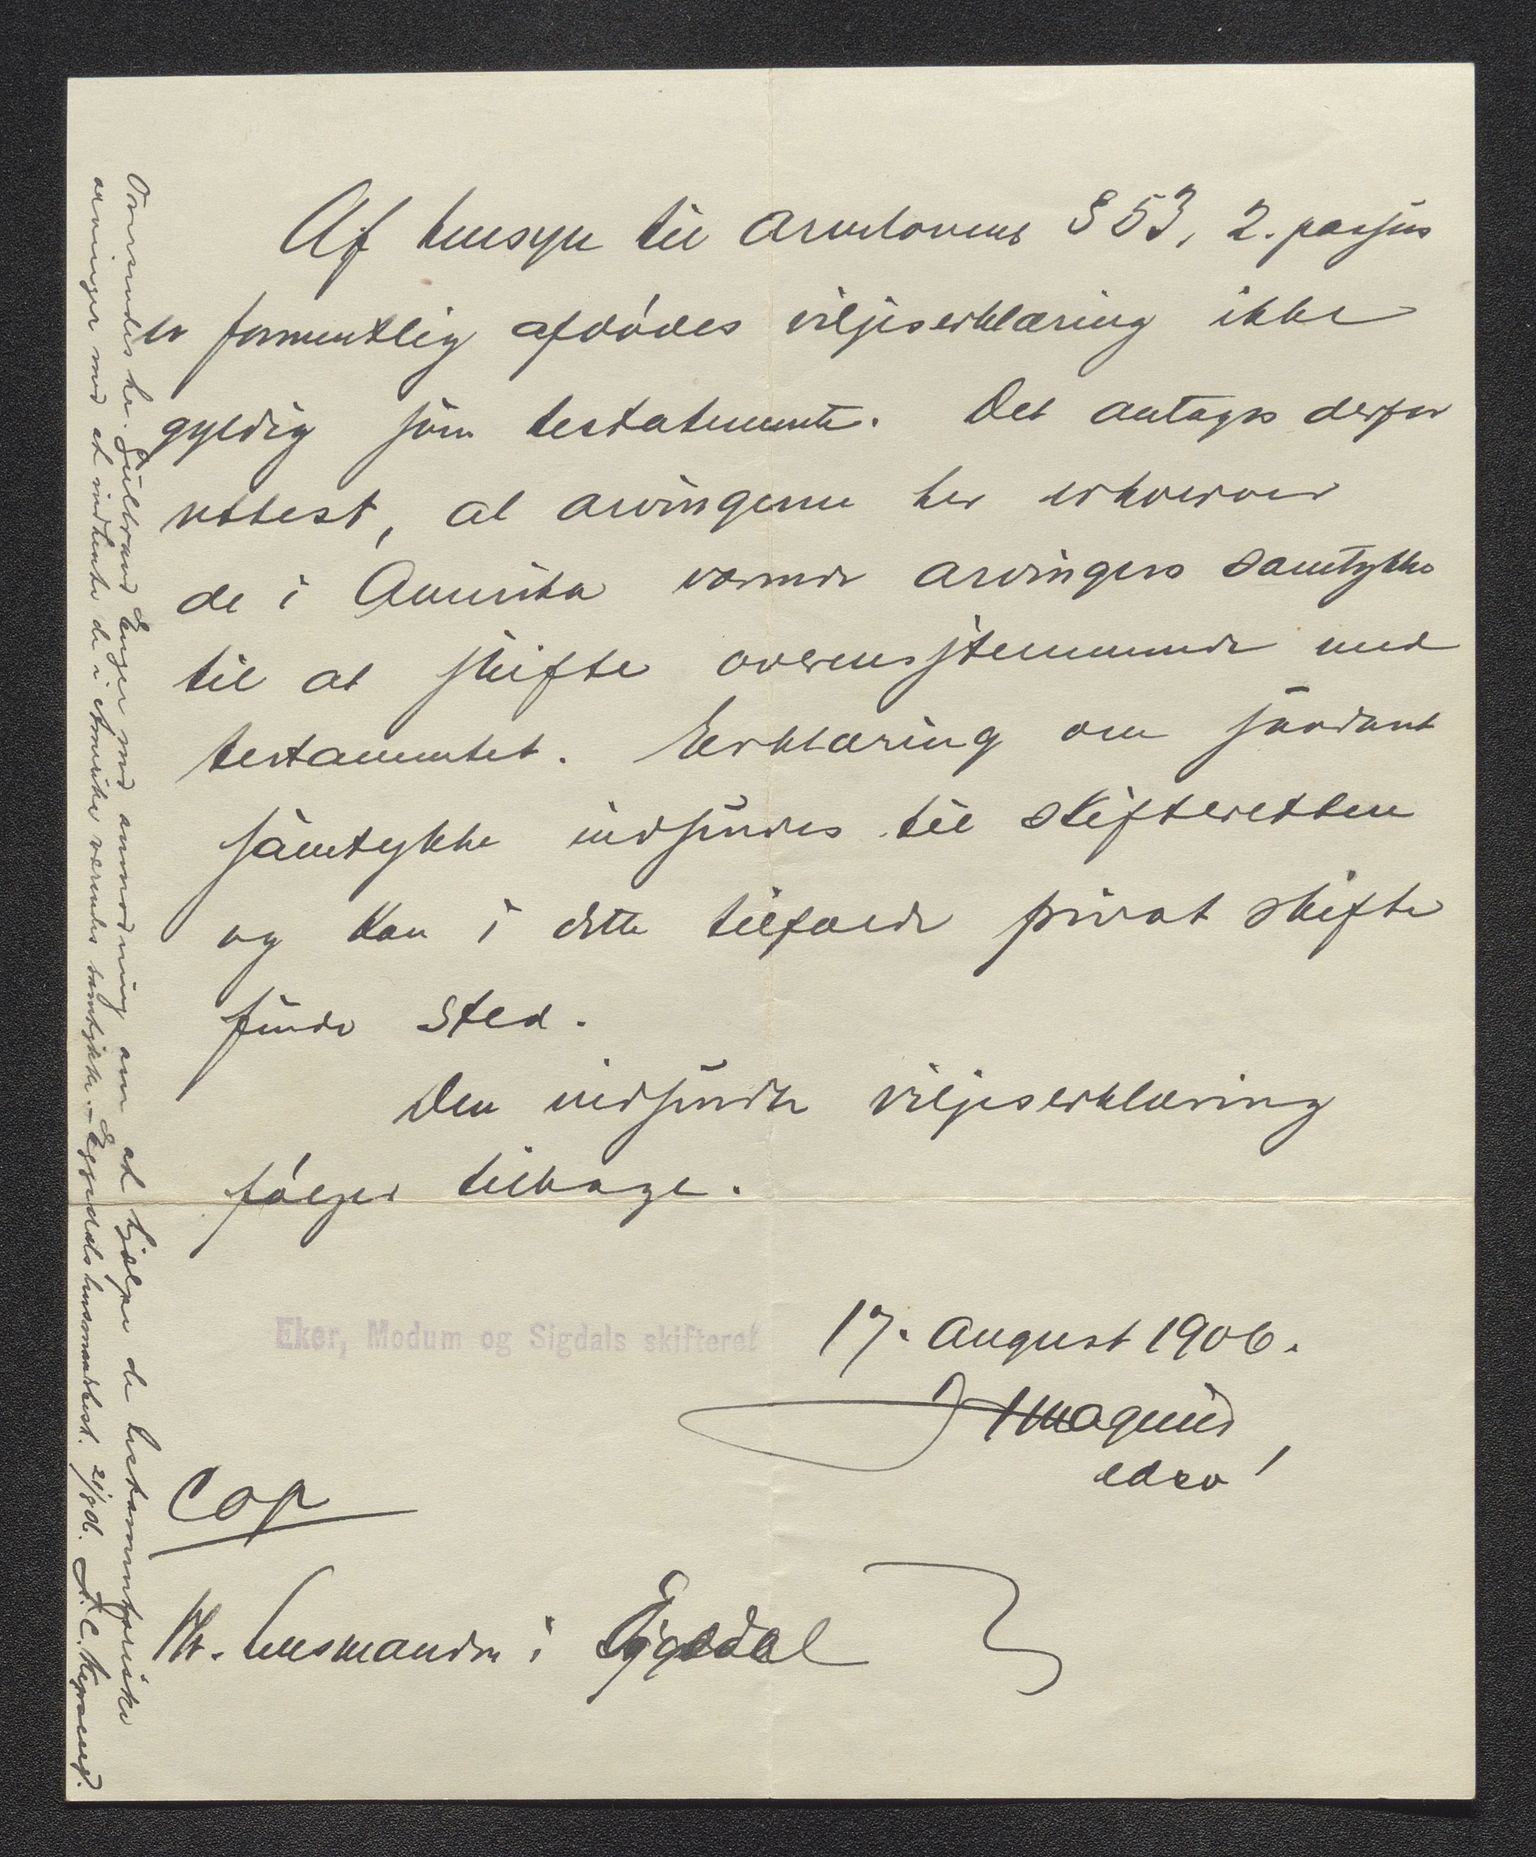 Af hensyn til arvelovens § 53, 2. passus
er formentlig afdødes viljeserklæring ikke
gyldig som testatamente. Det antages derfor
rettest, at arvingerne her erhverver
de i Amerika værende arvingers samtykke
til at skifte overensstemmende med
testamentet. Erklæring om saadant
samtykke indsendes til skifteretten
og kan i dette tilfælde privat skifte
finde sted.
Den indsendte viljeserklæring
følger tilbage.
Eker, Modum og Sigdals skifteret
17. August 1906.
edsv
Cop
Hr. Lensmanden i Eggedal
Oversendes hr. Gulbrand Enger med anmodning om at hjælpe de testamentariske
arvinger med at indhente de i Amerika værendes samtykke. - Eggedals lensmandsbest. 21/8 06.